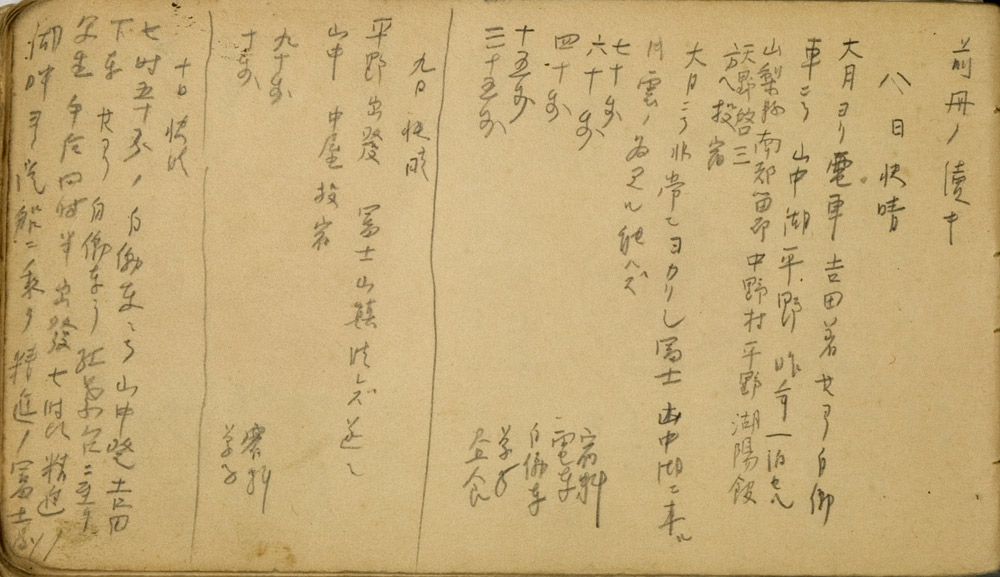 前冊ノ續キ
八日 快晴
大月ヨリ電車 吉田着 ヨリ自働
車ニテ 山中湖平野 昨年一泊セル
山梨縣南都留郡中野村平野湖陽館
天野啓三
方ヘ投宿
大月ニテ非常ニヨカリし富士 山中湖ニ来ル
月雲ノ為見ル能ハズ
七十求 宿料
六十求 電車
四十求 自働車
十五求 菓子
三十五求 昼食
九日 快晴
平野出發 富士山 ズ
山中 中屋投宿
九十求 宿料
十求 菓子
十日 快晴
七時五十分ノ自働車ニテ山中發 吉田
下車 ヨリ自働車ニテ 台ニ至リ
写生 午后四時半出發 七時比精進
湖畔ヨリ汽船ニ乗リ精進ノ富士